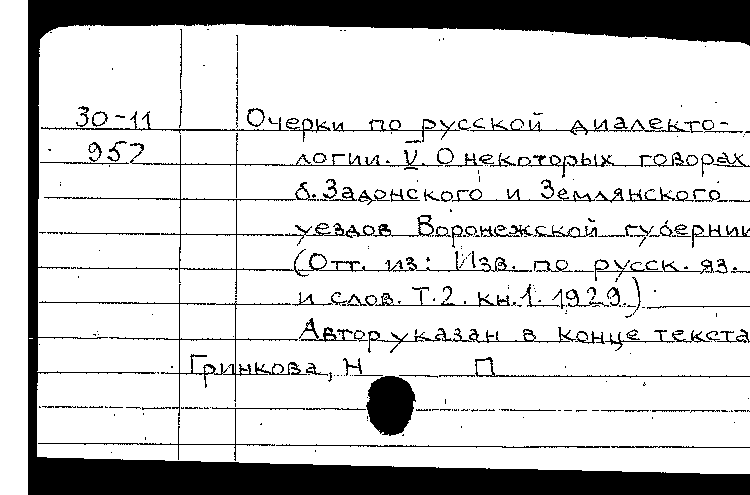 30-11 Очерки по русской диалекто-
957 логии. V. О некоторых говорах
б. Задонского и Землянского
уездов Воронежской губернии
(Отт. из: Изв. по русск. яз.
и слов. Т.2. кн.1. 1929.)
Автор указан в конце текста
Гринкова, Н П